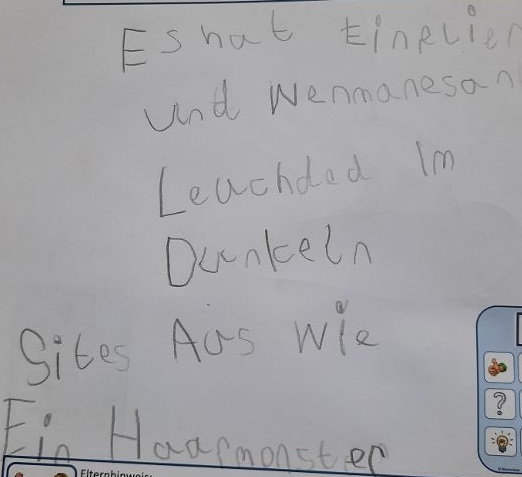 Es hat Einelier
und Wenmanesan
Leuchded Im
Dunkeln
Sites Aus Wie
Ein Haarmonster
Elternhinweis:
?